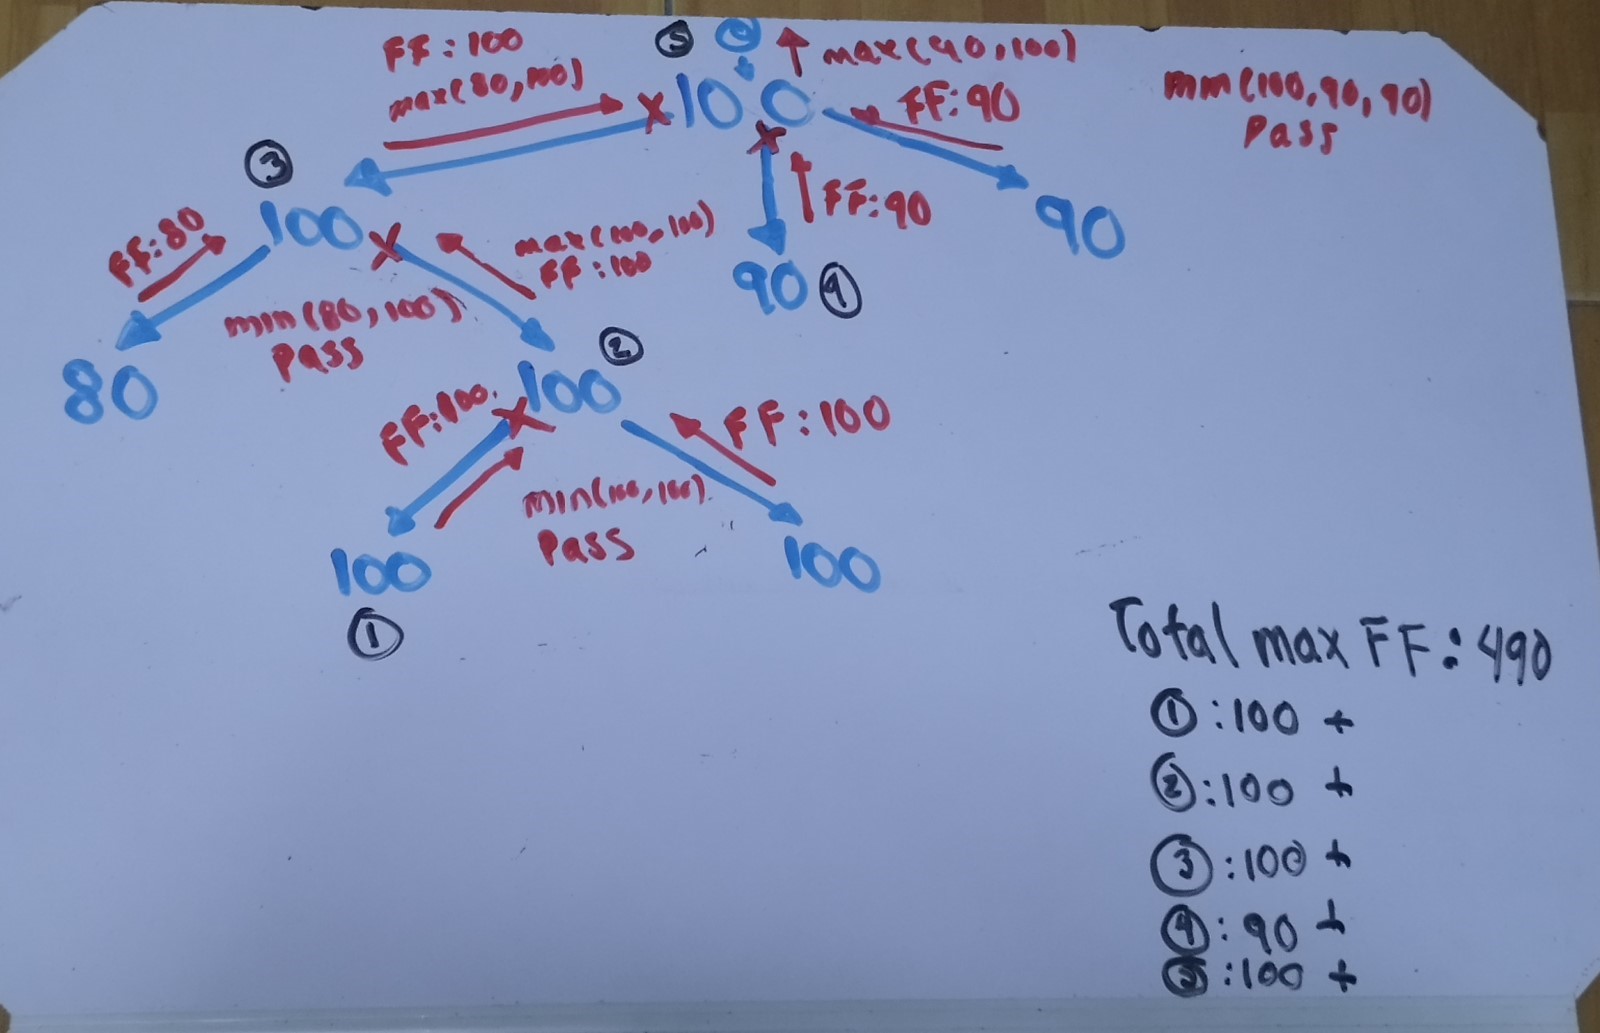 FF: 100
max(80,100)
5
max(90,100)
100
FF: 90
min(100,90,90)
Pass
3
100
FF:80
max(100,100)
FF: 100
FF: 90
90
90 4
min(80,100)
Pass
80
2
100
FF:100.
FF: 100
min(100,100)
Pass
100
100
1
Total max FF: 490
1 : 100 +
2 : 100 +
3 : 100 +
4 : 90 +
5 : 100 +